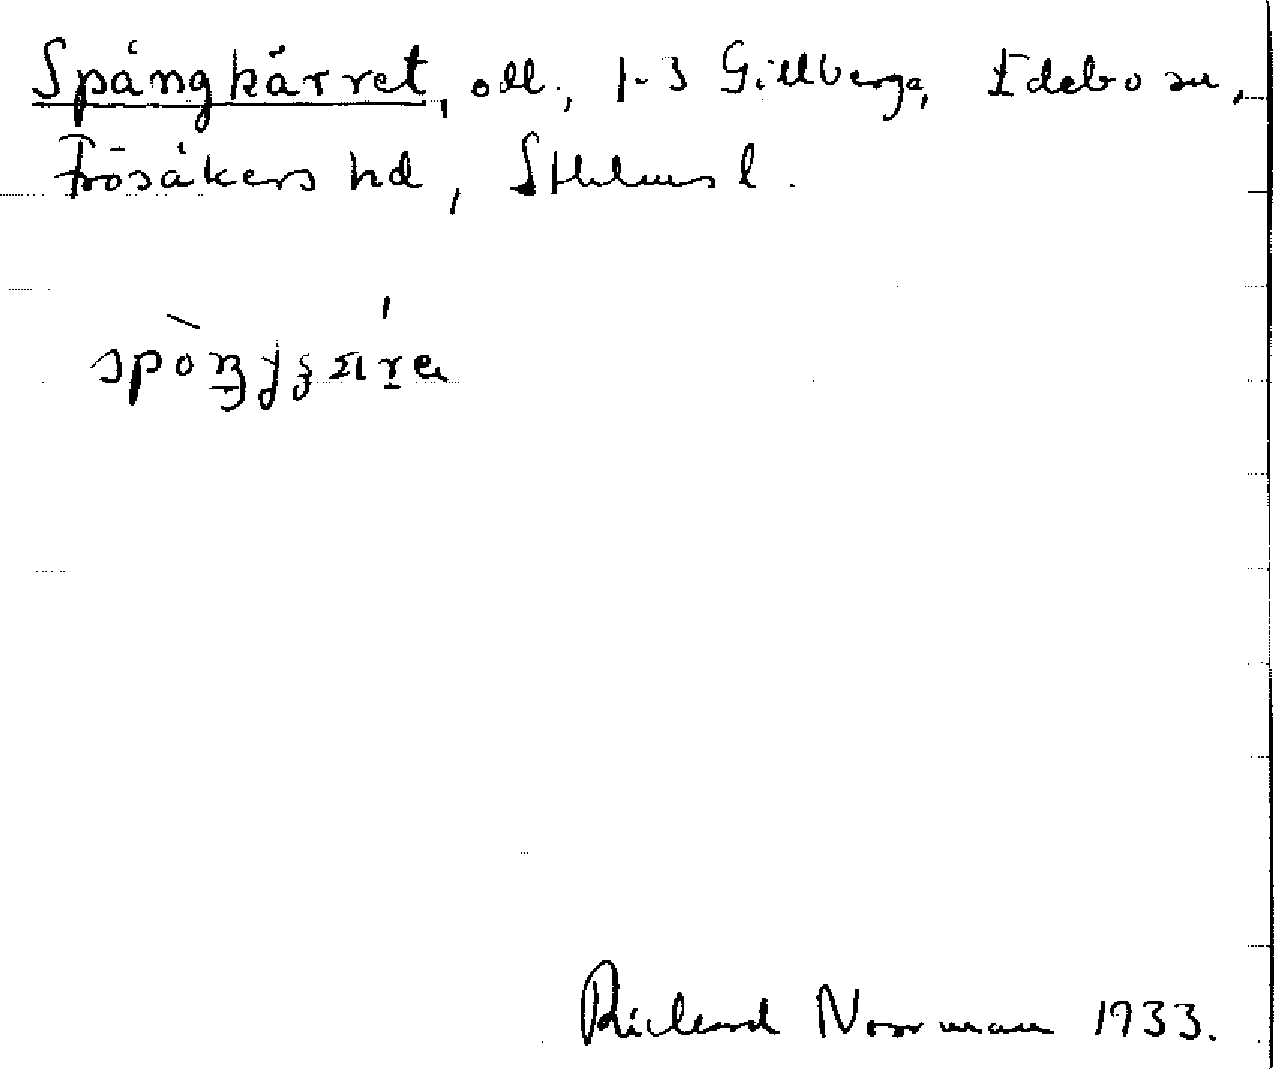 Spångkärret, odl., 1-3 Gillberga, Edebo sn,
Frösåkers hd, Sthlms l.
Richard Norrman 1933.